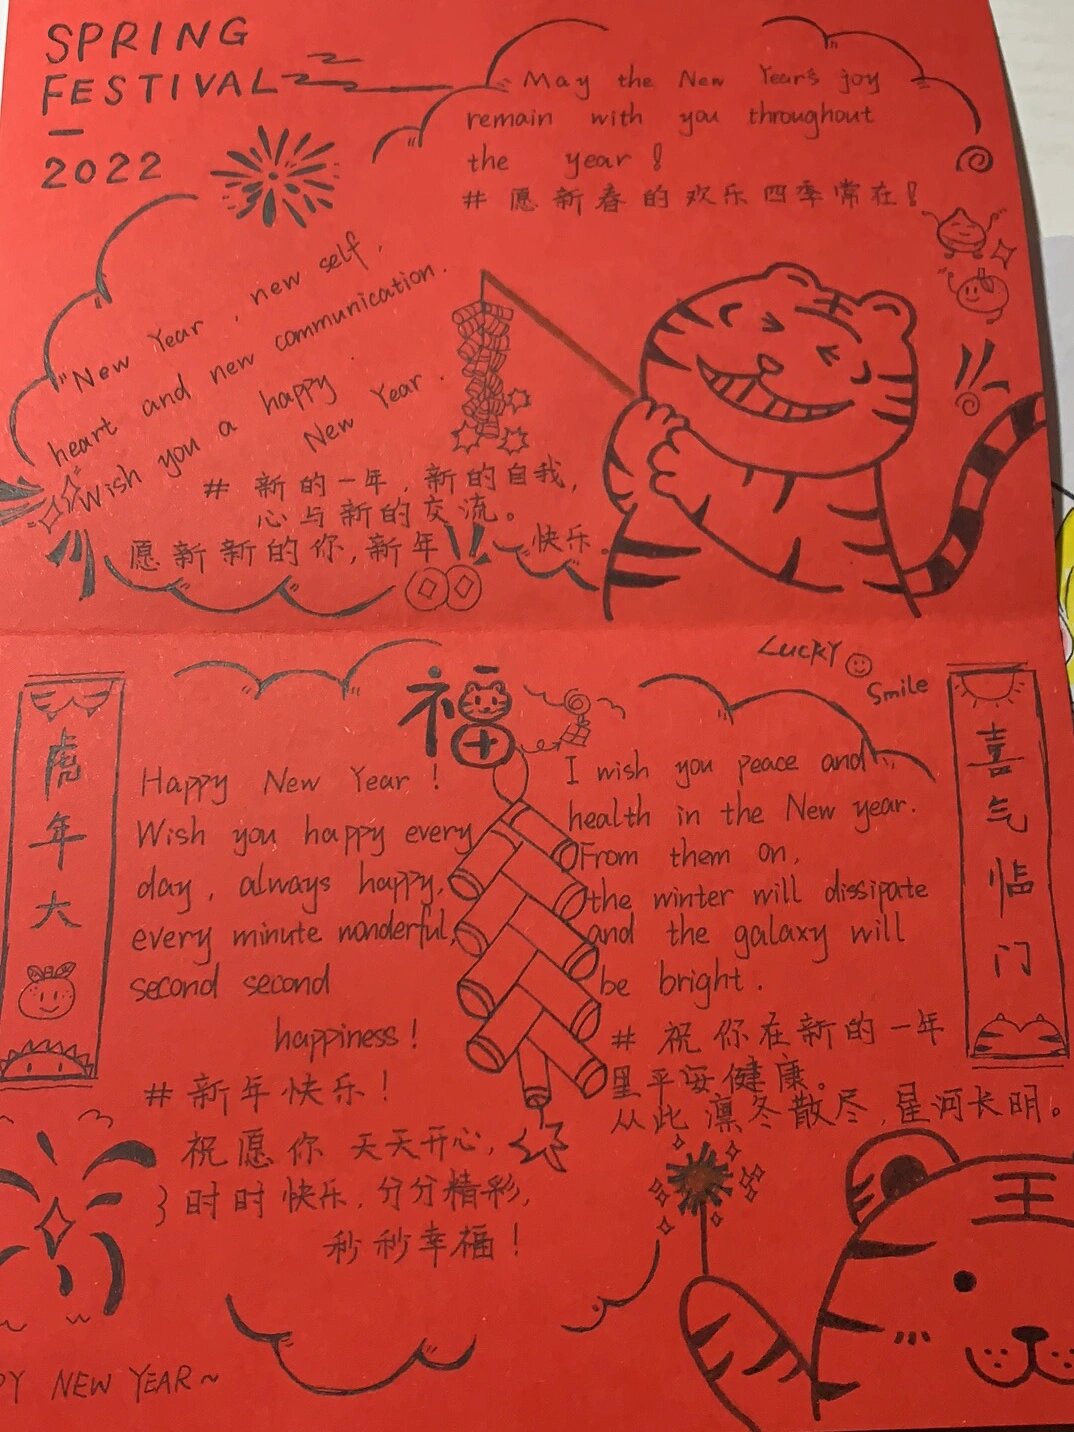 SPRING
FESTIVAL
—
2022
May the New Year's joy
remain with you throughout
the year !
# 愿新春的欢乐四季常在!
"New Year , new self ,
heart and new communication .
Wish you a happy
New Year .
# 新的一年，新的自我，
心与新的交流。
愿新新的你,新年快乐.
LUCKY
Smile
福
虎年大
喜气临门
Happy New Year !
Wish you happy every
day, always happy,
every minute wonderful,
second second
happiness !
# 新年快乐!
祝愿你 天天开心,
时时快乐,分分精彩,
秒秒幸福!
I wish you peace and
health in the New year.
From them on,
the winter will dissipate
and the galaxy will
be bright.
# 祝你在新的一年
里平安健康。
从此凛冬散尽,星河长明。
王
PY NEW YEAR~